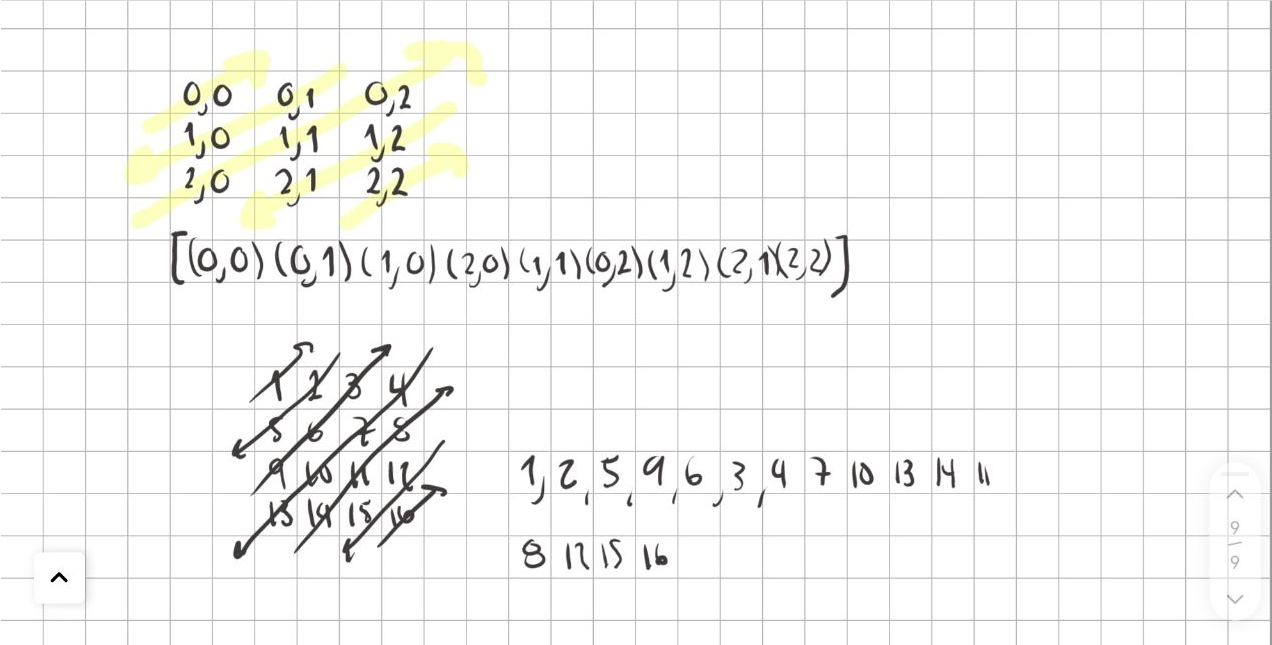 0,0 0,1 0,2
1,0 1,1 1,2
2,0 2,1 2,2
[(0,0) (0,1) (1,0) (2,0) (1,1) (0,2) (1,2) (2,1) (2,2)]
1 2 3 4
5 6 7 8
9 10 11 12
13 14 15 16
1, 2, 5, 9, 6, 3, 4 7 10 13 14 11
8 12 15 16
9
9